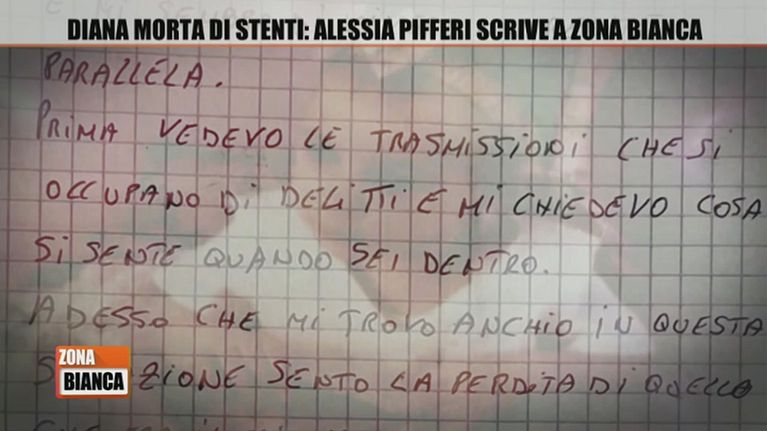 DIANA MORTA DI STENTI: ALESSIA PIFFERI SCRIVE A ZONA BIANCA
PARALLELA.
PRIMA VEDEVO LE TRASMISSIONI CHE SI
OCCUPANO DI DELITTI E MI CHIEDEVO COSA
SI SENTE QUANDO SEI DENTRO.
ADESSO CHE MI TROVO ANCHIO IN QUESTA
ZIONE SENTO LA PERDITA DI QUELLO
ZONA
BIANCA